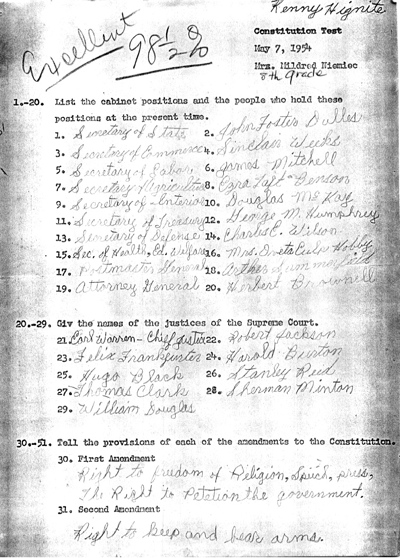 Kenny Hignite
Excellent
98 1/2 %
Constitution Test
May 7, 1954
Mrs. Mildred Niemiec
8th Grade
1.-20. List the cabinet positions and the people who hold these
positions at the present time.
1. Secretary of State 2. John Foster Dulles
3. Secretary of Commerce 4. Sinclair Weeks
5. Secretary of Labor 6. James Mitchell
7. Secretary Agriculture 8. Ezra Taft Benson
9. Secretary of Interior 10. Douglas McKay
11. Secretary of Treasury 12. George M. Humphrey
13. Secretary of Defense 14. Charles E. Wilson
15. Sec. of Health, Ed. Welfare 16. Mrs. Oveta Culp Hobby
17. Postmaster General 18. Arthur Summerfield
19. Attorney General 20. Herbert Brownell
20.-29. Giv the names of the justices of the Supreme Court.
21. Earl Warren - Chief Justice 22. Robert Jackson
23. Felix Frankfurter 24. Harold Burton
25. Hugo Black 26. Stanley Reed
27. Thomas Clark 28. Sherman Minton
29. William Douglas
30.-51. Tell the provisions of each of the amendments to the Constitution.
30. First Amendment
Right to freedom of Religion, Speech, press,
The Right to Petation the government.
31. Second Amendment
Right to keep and bear arms.